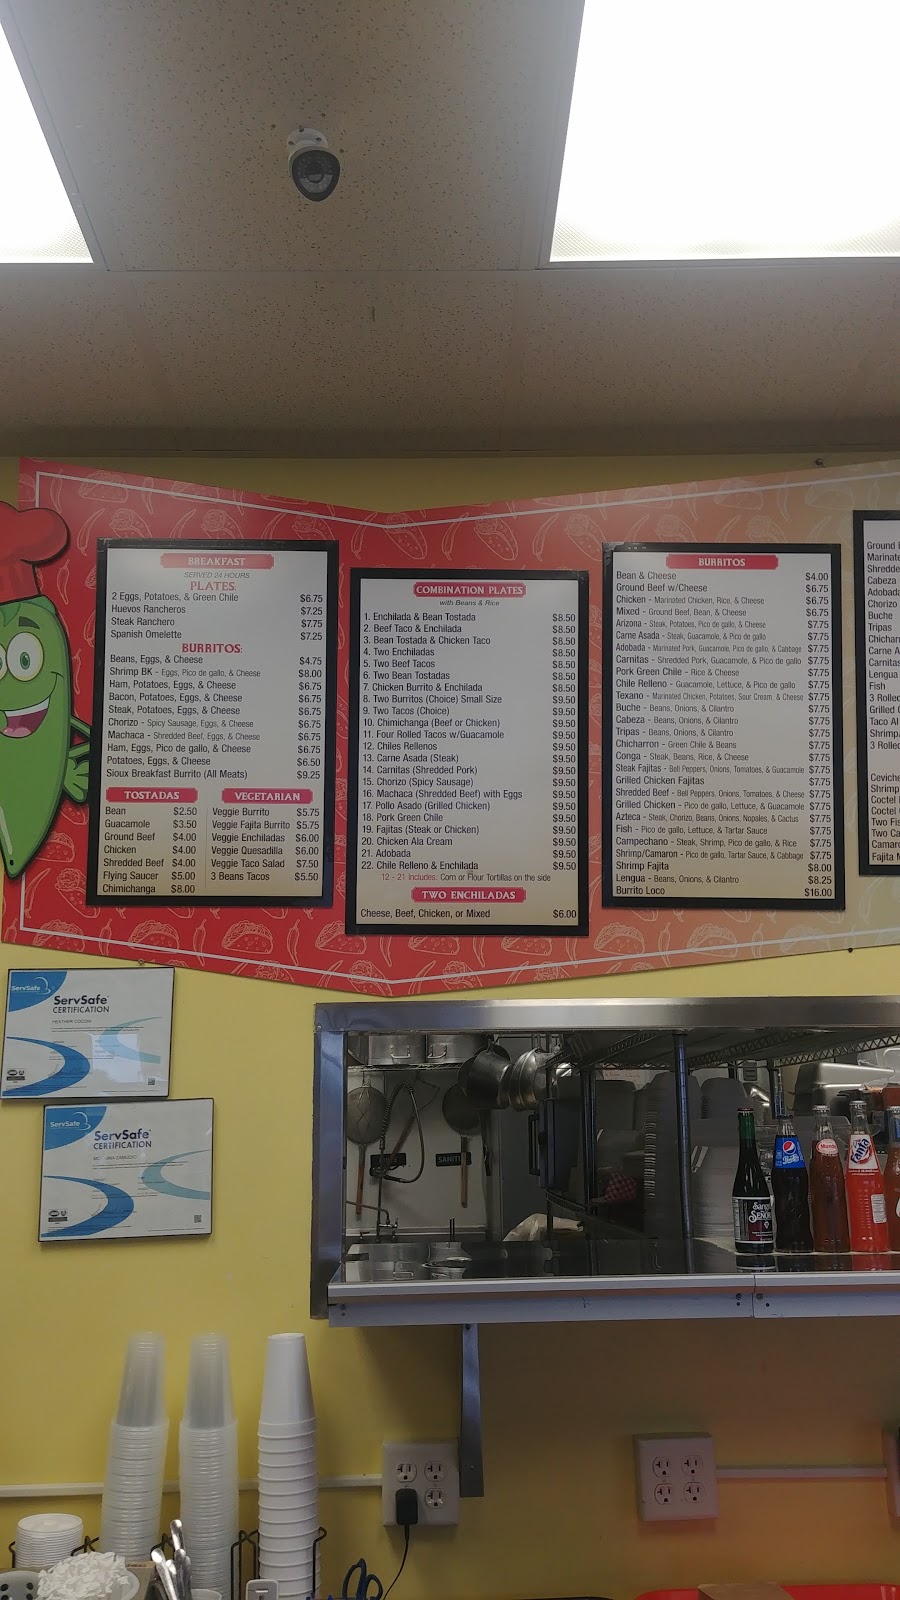 BREAKFAST
SERVED 24 HOURS
PLATES:
2 Eggs, Potatoes, & Green Chile $6.75
Huevos Rancheros $7.25
Steak Ranchero $7.75
Spanish Omelette $7.25
BURRITOS:
Beans, Eggs, & Cheese $4.75
Shrimp BK - Eggs, Pico de gallo, & Cheese $8.00
Ham, Potatoes, Eggs, & Cheese $6.75
Bacon, Potatoes, Eggs, & Cheese $6.75
Steak, Potatoes, Eggs, & Cheese $6.75
Chorizo - Spicy Sausage, Eggs, & Cheese $6.75
Machaca - Shredded Beef, Eggs, & Cheese $6.75
Ham, Eggs, Pico de gallo, & Cheese $6.75
Potatoes, Eggs, & Cheese $6.50
Sioux Breakfast Burrito (All Meats) $9.25
TOSTADAS
Bean $2.50
Guacamole $3.50
Ground Beef $4.00
Chicken $4.00
Shredded Beef $4.00
Flying Saucer $5.00
Chimichanga $8.00
VEGETARIAN
Veggie Burrito $5.75
Veggie Fajita Burrito $5.75
Veggie Enchiladas $6.00
Veggie Quesadilla $6.00
Veggie Taco Salad $7.50
3 Beans Tacos $5.50
COMBINATION PLATES
with Beans & Rice
1. Enchilada & Bean Tostada $8.50
2. Beef Taco & Enchilada $8.50
3. Bean Tostada & Chicken Taco $8.50
4. Two Enchiladas $8.50
5. Two Beef Tacos $8.50
6. Two Bean Tostadas $8.50
7. Chicken Burrito & Enchilada $8.50
8. Two Burritos (Choice) Small Size $9.50
9. Two Tacos (Choice) $9.50
10. Chimichanga (Beef or Chicken) $9.50
11. Four Rolled Tacos w/Guacamole $9.50
12. Chiles Rellenos $9.50
13. Carne Asada (Steak) $9.50
14. Carnitas (Shredded Pork) $9.50
15. Chorizo (Spicy Sausage) $9.50
16. Machaca (Shredded Beef) with Eggs $9.50
17. Pollo Asado (Grilled Chicken) $9.50
18. Pork Green Chile $9.50
19. Fajitas (Steak or Chicken) $9.50
20. Chicken Ala Cream $9.50
21. Adobada $9.50
22. Chile Relleno & Enchilada $9.50
12 - 21 Includes: Corn or Flour Tortillas on the side
TWO ENCHILADAS
Cheese, Beef, Chicken, or Mixed $6.00
BURRITOS
Bean & Cheese $4.00
Ground Beef w/Cheese $6.75
Chicken - Marinated Chicken, Rice, & Cheese $6.75
Mixed - Ground Beef, Bean, & Cheese $6.75
Arizona - Steak, Potatoes, Pico de gallo, & Cheese $7.75
Carne Asada - Steak, Guacamole, & Pico de gallo $7.75
Adobada - Marinated Pork, Guacamole, Pico de gallo, & Cabbage $7.75
Carnitas - Shredded Pork, Guacamole, & Pico de gallo $7.75
Pork Green Chile - Rice & Cheese $7.75
Chile Relleno - Guacamole, Lettuce, & Pico de gallo $7.75
Texano - Marinated Chicken, Potatoes, Sour Cream, & Cheese $7.75
Buche - Beans, Onions, & Cilantro $7.75
Cabeza - Beans, Onions, & Cilantro $7.75
Tripas - Beans, Onions, & Cilantro $7.75
Chicharron - Green Chile & Beans $7.75
Conga - Steak, Beans, Rice, & Cheese $7.75
Steak Fajitas - Bell Peppers, Onions, Tomatoes, & Guacamole $7.75
Grilled Chicken Fajitas $7.75
Shredded Beef - Bell Peppers, Onions, Tomatoes, & Cheese $7.75
Grilled Chicken - Pico de gallo, Lettuce, & Guacamole $7.75
Azteca - Steak, Chorizo, Beans, Onions, Nopales, & Cactus $7.75
Fish - Pico de gallo, Lettuce, & Tartar Sauce $7.75
Campechano - Steak, Shrimp, Pico de gallo, & Rice $7.75
Shrimp/Camaron - Pico de gallo, Tartar Sauce, & Cabbage $7.75
Shrimp Fajita $8.00
Lengua - Beans, Onions, & Cilantro $8.25
Burrito Loco $16.00
Ground
Cabeza
Chorizo
Buche
Tripas
Carne A
Carnitas
Lengua
Fish
3 Rolled
Taco Al
Shrimp
Ceviche
Shrimp
Coctel
Coctel
Two Fis
Two Ca
Fajita
ServSafe
ServSafe
CERTIFICATION
ServSafe
ServSafe
CERTIFICATION
SANITI
SEÑOR
pepsi
Fanta